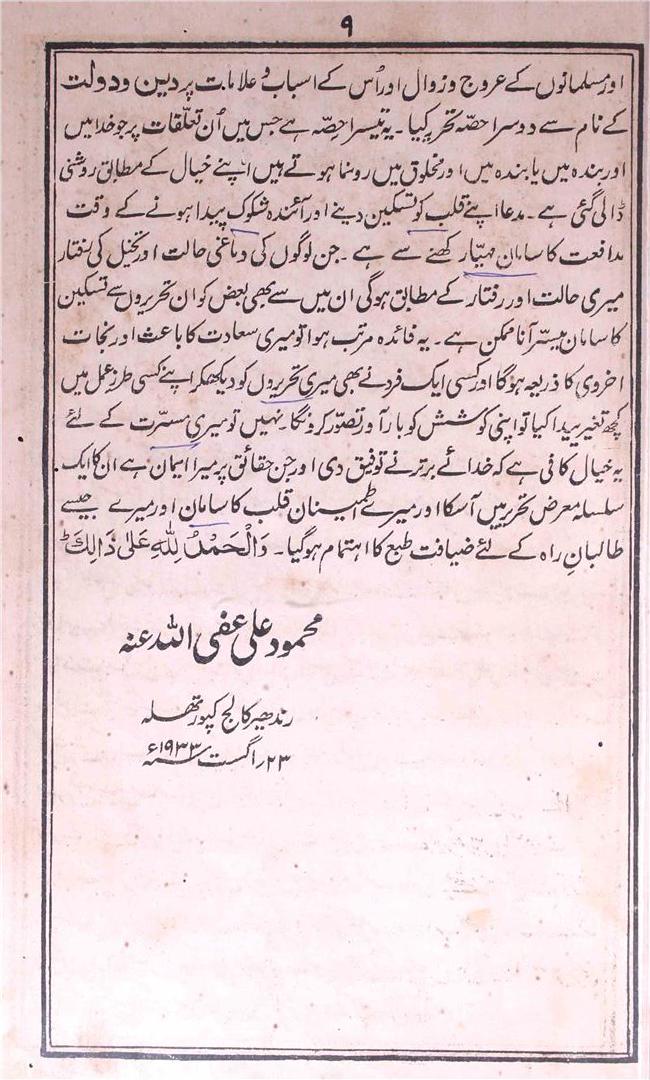 ۹
اور مسلمانوں کے عروج و زوال اور اُس کے اسباب و علامات پر دین و دولت
کے نام سے دوسرا حصہ تحریر کیا۔ یہ تیسرا حِصّہ ہے جس میں اُن تعلّقات پر جو خدا میں
اور بندہ میں یا بندہ میں اور مخلوق میں رونما ہوتے ہیں اپنے خیال کے مطابق روشنی
ڈالی گئی ہے۔ مدعا اپنے قلب کو تسکین دینے اور آئندہ شکوک پیدا ہونے کے وقت
مدافعت کا سامان مہیّا رکھنے سے ہے۔ جن لوگوں کی دماغی حالت اور تخیل کی رفتار
میری حالت اور رفتار کے مطابق ہوگی ان میں سے بھی بعض کو ان تحریروں سے تسکین
کا سامان میسّر آنا ممکن ہے۔ یہ فائدہ مرتب ہوا تو میری سعادت کا باعث اور نجات
اخروی کا ذریعہ ہوگا اور کسی ایک فرد نے بھی میری تحریروں کو دیکھکر اپنے کسی طرزِ عمل میں
کچھ تغیر پیدا کیا تو اپنی کوشش کو بار آور تصوّر کرونگا۔ نہیں تو میری مسرّت کے لئے
یہ خیال کافی ہے کہ خدائے برتر نے توفیق دی اور جن حقائق پر میرا ایمان ہے ان کا ایک
سلسلہ معرض تحریر میں آسکا اور میرے اطمینان قلب کا سامان اور میرے جیسے
طالبانِ راہ کے لئے ضیافت طبع کا اہتمام ہوگیا۔ وَالْحَمْدُ لِلّٰہِ عَلٰی ذَالِکَ ط
محمود علی عفی اللہ عنہ
رندھیر کالج کپورتھلہ
۲۳؍ اگست ۱۹۳۳ء